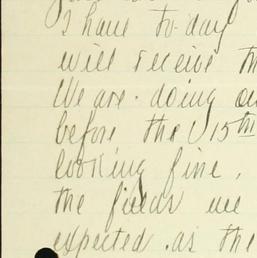 I have to-day
will receive th
We are doing ou
before the 15th
looking fine,
the fields we
expected. as the